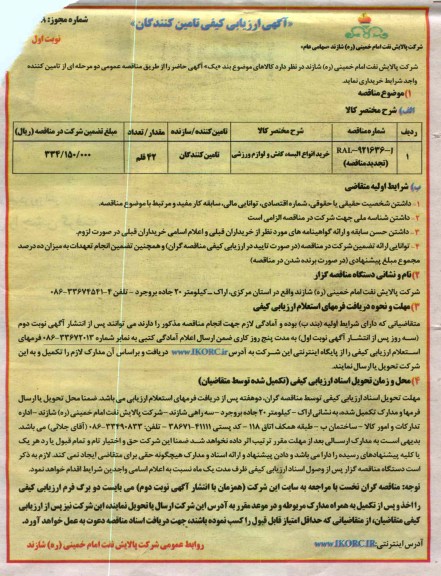 «آگهی ارزیابی کیفی تامین کنندگان»
شماره مجوز:
نوبت اول
شرکت پالایش نفت امام خمینی (ره) شازند «سهامی عام»
شرکت پالایش نفت امام خمینی (ره) شازند در نظر دارد کالاهای موضوع بند «یک» آگهی حاضر را از طریق مناقصه عمومی دو مرحله ای از تامین کننده
واجد شرایط خریداری نماید.
۱) موضوع مناقصه
الف) شرح مختصر کالا
ردیف شماره مناقصه شرح مختصر کالا تامین کننده/سازنده مقدار/تعداد مبلغ تضمین شرکت در مناقصه (ریال)
۱ RAL-9211636-J (تجدید مناقصه) خرید انواع البسه، کفش و لوازم ورزشی تامین کنندگان ۴۲ قلم ۳۳۴/۱۵۰/۰۰۰
ب) شرایط اولیه متقاضی
۱. داشتن شخصیت حقیقی یا حقوقی، شماره اقتصادی، توانایی مالی، سابقه کار مفید و مرتبط با موضوع مناقصه.
۲. داشتن شناسه ملی جهت شرکت در مناقصه الزامی است
۳. داشتن حسن سابقه و ارائه گواهینامه های مورد نظر از خریداران قبلی و اعلام اسامی خریداران قبلی در صورت لزوم.
۴. توانایی ارائه تضمین شرکت در مناقصه (در صورت تایید در ارزیابی کیفی مناقصه گران) و همچنین تضمین انجام تعهدات به میزان ده درصد
مجموع مبلغ پیشنهادی (در صورت برنده شدن در مناقصه)
۲) نام و نشانی دستگاه مناقصه گزار
شرکت پالایش نفت امام خمینی (ره) شازند واقع در استان مرکزی، اراک ـ کیلومتر ۲۰ جاده بروجرد - تلفن ۴-۳۳۶۷۴۵۴۱-۰۸۶
۳) مهلت و نحوه دریافت فرمهای استعلام ارزیابی کیفی
متقاضیانی که دارای شرایط اولیه (بند ب) بوده و آمادگی لازم جهت انجام مناقصه مذکور را دارند می توانند پس از انتشار آگهی نوبت دوم
(سه روز پس از انتشار آگهی نوبت اول) به مدت پنج روز کاری ضمن ارسال اعلام آمادگی کتبی به نمابر شماره ۳۳۶۷۲۰۱۳-۰۸۶ فرمهای
استعلام ارزیابی کیفی را از پایگاه اینترنتی این شرکت به آدرس WWW.IKORC.IR دریافت و براساس آن مدارک لازم را تکمیل و به این
شرکت تحویل یا ارسال نمایند.
۴) محل و زمان تحویل اسناد ارزیابی کیفی (تکمیل شده توسط متقاضیان)
مهلت تحویل اسناد ارزیابی کیفی توسط مناقصه گران، دو هفته پس از دریافت فرمهای استعلام ارزیابی می باشد. ضمنا محل تحویل یا ارسال
فرمها و مدارک تکمیل شده، به نشانی اراک - کیلومتر ۲۰ جاده بروجرد - سه راهی شازند - شرکت پالایش نفت امام خمینی (ره) شازند - اداره
تدارکات و امور کالا - ساختمان ب - طبقه همکف اتاق ۱۱۸ - کد پستی ۴۱۱۱۱-۳۸۶۷۱ - تلفن: ۳۳۴۹۰۸۳۳-۰۸۶ (آقای جلائی) می باشد.
بدیهی است به مدارک ارسالی بعد از مهلت مقرر ترتیب اثر داده نخواهد شد ضمنا این شرکت حق و اختیار تام و تمام قبول یا رد هر یک
یا کلیه پیشنهادهای رسیده را دارا می باشد و دادن پیشنهاد و ارائه اسناد و مدارک هیچگونه حقی برای متقاضی ایجاد نمی کند. لازم به ذکر
است دستگاه مناقصه گزار پس از وصول اسناد ارزیابی کیفی ظرف مدت یک ماه نسبت به اعلام اسامی واجدین شرایط اقدام خواهد نمود.
توجه: مناقصه گران نخست با مراجعه به سایت این شرکت (همزمان با انتشار آگهی نوبت دوم) می بایست دو برگ فرم ارزیابی کیفی
را اخذ و پس از تکمیل به همراه مدارک مربوطه و در موعد مقرر به آدرس این شرکت ارسال یا تحویل نمایند؛ این شرکت نیز پس از ارزیابی
کیفی متقاضیان، از متقاضیانی که حداقل امتیاز قابل قبول را کسب نموده باشند، جهت دریافت اسناد مناقصه دعوت به عمل خواهد آورد.
آدرس اینترنتی: www.IKORC.IR
روابط عمومی شرکت پالایش نفت امام خمینی (ره) شازند